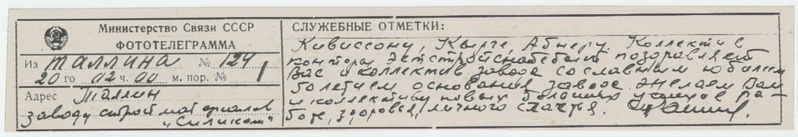 Министерство Связи СССР
ФОТОТЕЛЕГРАММА
Из Таллина № 124
20 го 02 ч. 00 м. пор. № 1
Адрес Таллин
заводу стройматериалов
"Силикат"
СЛУЖЕБНЫЕ ОТМЕТКИ:
Кивиссону, Кырге, Абнеру. Коллектив
конторы Эстстройснабсбыт поздравляет
Вас и коллектив завода со славным юбилеем
летием основания завода желаем Вам
и коллективу новых больших успехов в ра-
боте, здоровья, личного счастья.